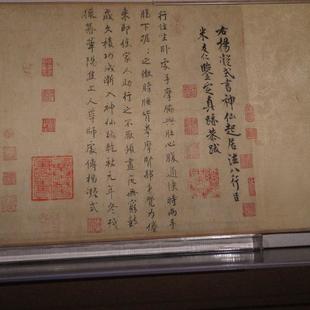 右楊凝式書神仙起居法八行臣
米友仁鑒定真蹟恭跋
行住坐臥處手摩脅與肚心腹通快時兩手
腸下踞之徹膀腰背拳摩腎部才覺力倦
來即使家人助行之不厭頻晝夜無窮數
歲久積功成漸入神仙路乾祐元年冬殘
臘暮華陽焦上人尊師處傳楊凝式